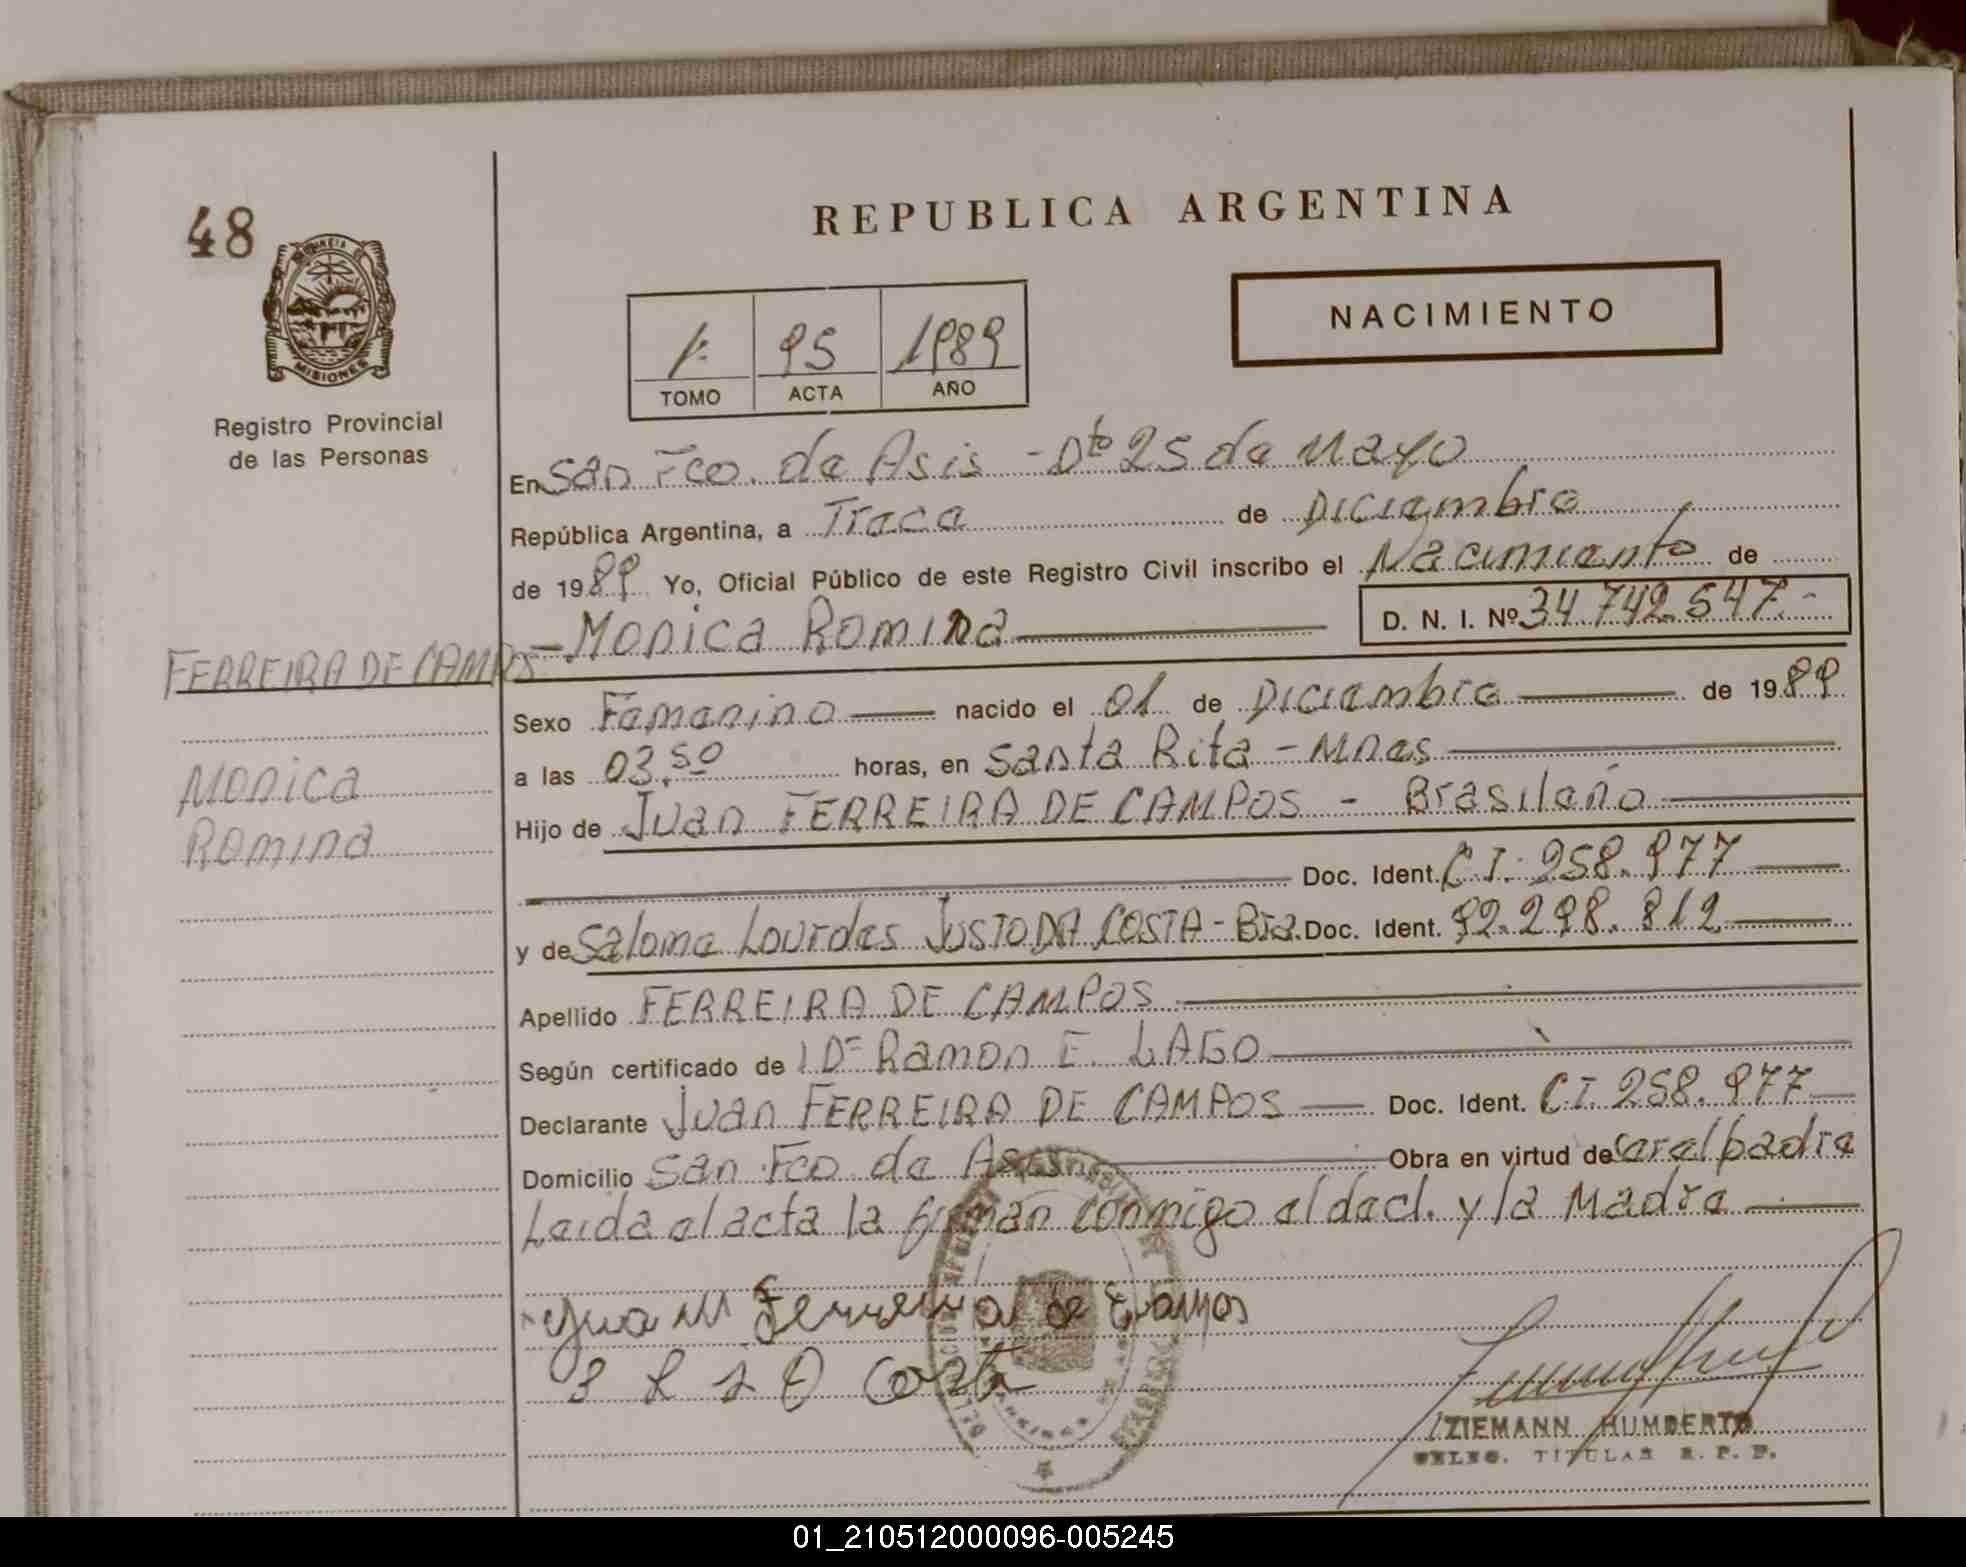 48
REPUBLICA ARGENTINA
MISIONES
Registro Provincial
de las Personas
1: 95 1989
TOMO ACTA AÑO
NACIMIENTO
En San Fco. de Asis - Dto 25 de Mayo
República Argentina, a Trece de Diciembre
de 1989 Yo, Oficial Público de este Registro Civil inscribo el Nacimiento de
- Monica Romina D. N. I. Nº 34.742.547.-
FERREIRA DE CAMPOS
Monica
Romina
Sexo Femenino nacido el 01 de Diciembre de 1989
a las 03.50 horas, en Santa Rita - Mnes
Hijo de Juan FERREIRA DE CAMPOS - Brasileño
Doc. Ident. C.I. 258.977
y de Salome Lourdes JUSTO DA COSTA - Bra. Doc. Ident. 92.298.812
Apellido FERREIRA DE CAMPOS
Según certificado de Dr Ramon E. LAGO
Declarante Juan FERREIRA DE CAMPOS Doc. Ident. C.I. 258.977
Domicilio San Fco de Asis Obra en virtud de ser el padre
Leida el acta la firman conmigo el decl. y la Madre
Ferreira de Campos
S L J D Costa
ZIEMANN HUMBERTO
DELEG. TITULAR R. P. P.
01_210512000096-005245